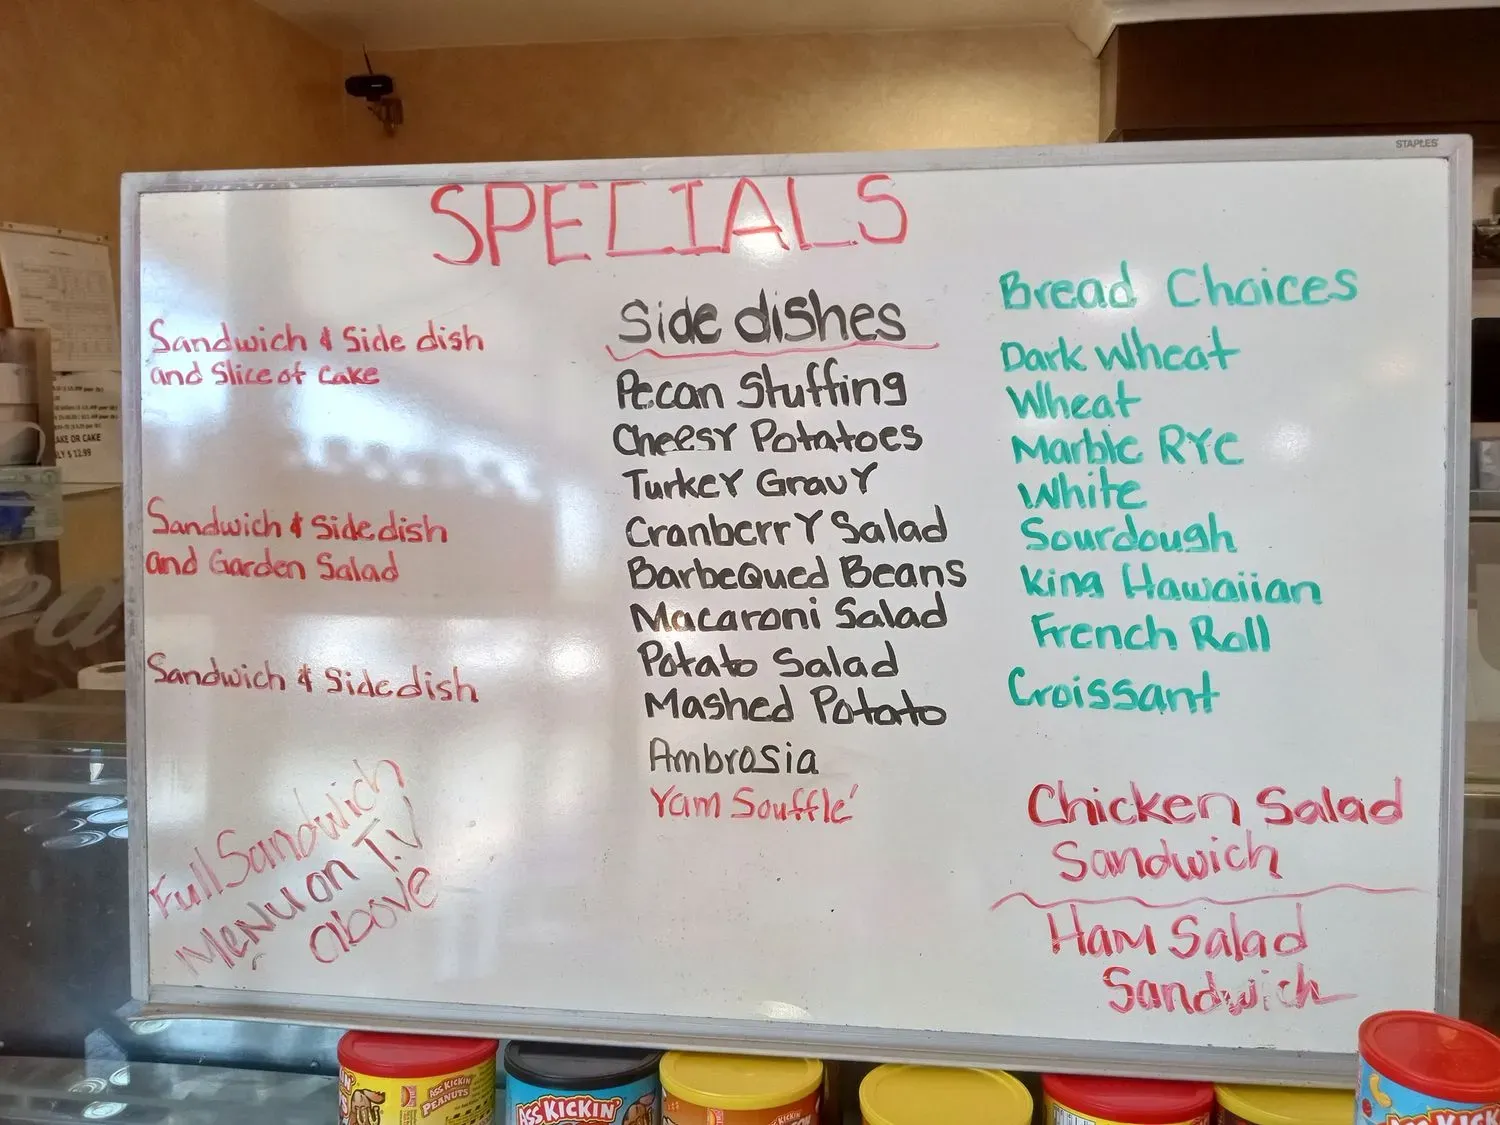 STAPLES
SPECIALS
Sandwich & Side dish
and Slice of Cake
Sandwich & Side dish
and Garden Salad
Sandwich & Side dish
Full Sandwich
Menu on T.V
above
Side dishes
Pecan Stuffing
Cheesy Potatoes
Turkey Gravy
Cranberry Salad
BarbeQued Beans
Macaroni Salad
Potato Salad
Mashed Potato
Ambrosia
Yam Souffle'
Bread Choices
Dark Wheat
Wheat
Marble Rye
White
Sourdough
King Hawaiian
French Roll
Croissant
Chicken Salad
Sandwich
Ham Salad
Sandwich
AKE OR CAKE
LY $ 12.99
ASS KICKIN'
PEANUTS
ASS KICKIN'